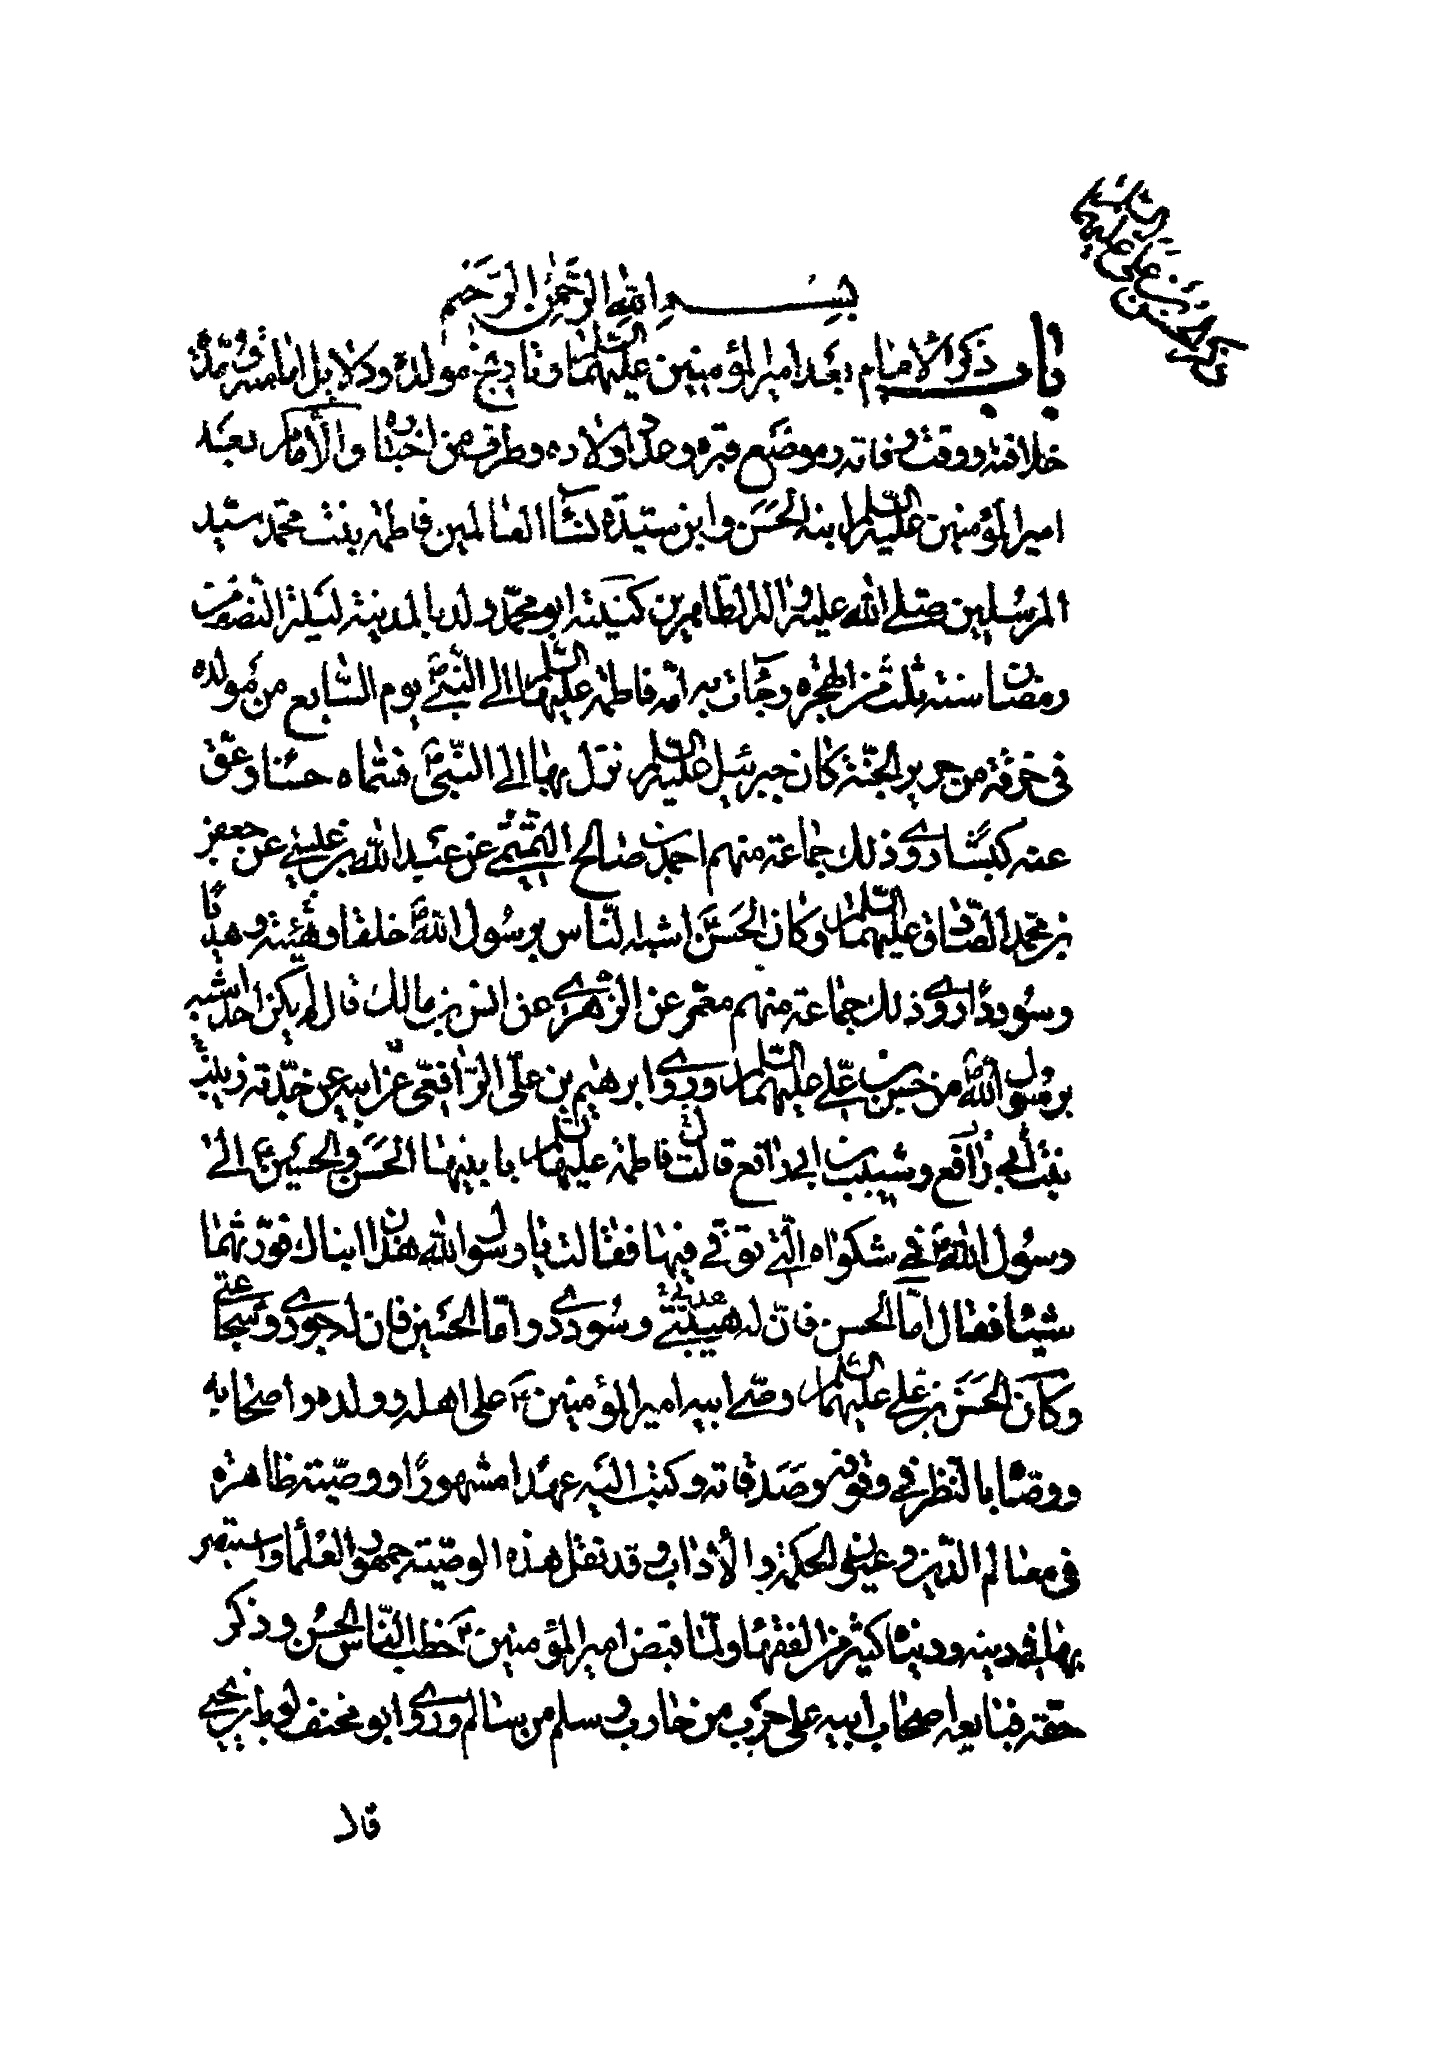 ذكر الحسن بن علي عليهما السلم
بسم الله الرحمن الرحيم
باب ذكر الامام بعد امير المؤمنين عليهما السلم وتاريخ مولده ودلايل امامته ومدّة
خلافته ووقت وفاته وموضع قبره وعدد اولاده وطرف من اخباره والامام بعد
امير المؤمنين عليه السلم ابنه الحسن وابن سيّدة نساء العالمين فاطمة بنت محمّد سيّد
المرسلين صلى الله عليه واله الطاهرين كنيته ابو محمّد ولد بالمدينة ليلة النصف من
رمضان سنة ثلث من الهجرة وجاءت به امّه فاطمة عليها السلم الى النبيّ ص يوم السّابع من مولده
في خرقة من حرير الجنّة كان جبرئيل عليه السلم نزل بها الى النّبيّ ص فسمّاه حسنا وعقّ
عنه كبشا روى ذلك جماعة منهم احمد بن صالح التميميّ عن عبد الله بن عيسى عن جعفر
بن محمد الصّادق عليهما السلم وكان الحسن اشبه النّاس برسول الله ص خلقا وهيئة وهديًا
وسوددًا روى ذلك جماعة منهم معمّر عن الزّهري عن انس بن مالك قال لم يكن احد اشبه
برسول الله ص من حسن بن عليّ عليهما السلم وروى ابرهيم بن عليّ الرّافعيّ عن ابيه عن جدّته زينب
بنت ابي رافع وشبيب بن ابي رافع قالت اتت فاطمة عليها السلم بابنيها الحسن والحسين ع الى
رسول الله ص في شكواه الّتي توفّي فيها فقالت يا رسول الله هذان ابناك فورّثهما
شيئا فقال امّا الحسن فانّ له هديتي وسوددي وامّا الحسين فان له جودي وشجاعتي
وكان الحسن بن علي عليهما السلم وصيّ ابيه امير المؤمنين ع على اهله وولده واصحابه
ووصّاه بالنّظر في وقوفه وصدقاته وكتب اليه عهدا مشهورًا ووصيّته ظاهرة
في معالم الدّين وعيون الحكمة والآداب وقد نقل هذه الوصيّة جمهور العلماء واستبصر
بها في دينه ودنياه كثير من الفقهاء ولمّا قبض امير المؤمنين ع خطب النّاس الحسن وذكر
حقّه فبايعه اصحاب ابيه على حرب من حارب وسلم من سالم وروى ابو مخنف لوط بن يحيى
قال